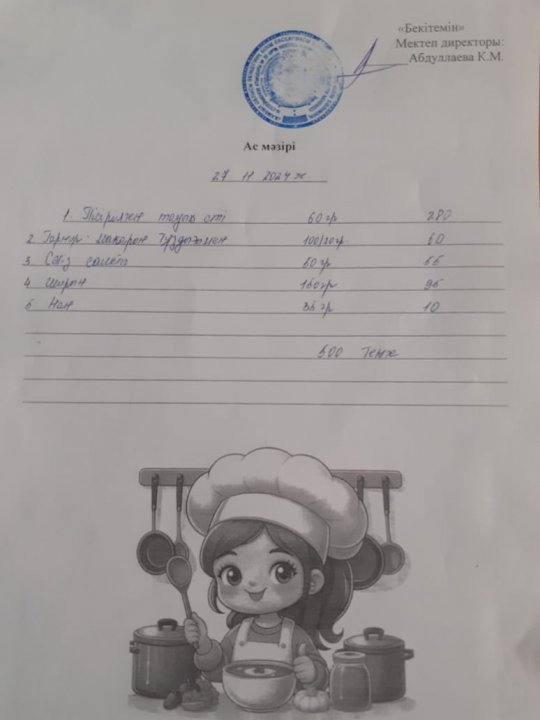 «Бекітемін»
Мектеп директоры:
Абдуллаева К.М.
Ас мәзірі
27 11 2024 ж.
1. Пісірілген тауық еті 60 гр 280
2 Гарнир: макарон тұздығымен 100/20 гр. 60
3 Сәбіз салаты 60 гр 55
4 шырын 180 гр 95
5 Нан 35 гр 10
500 Теңге